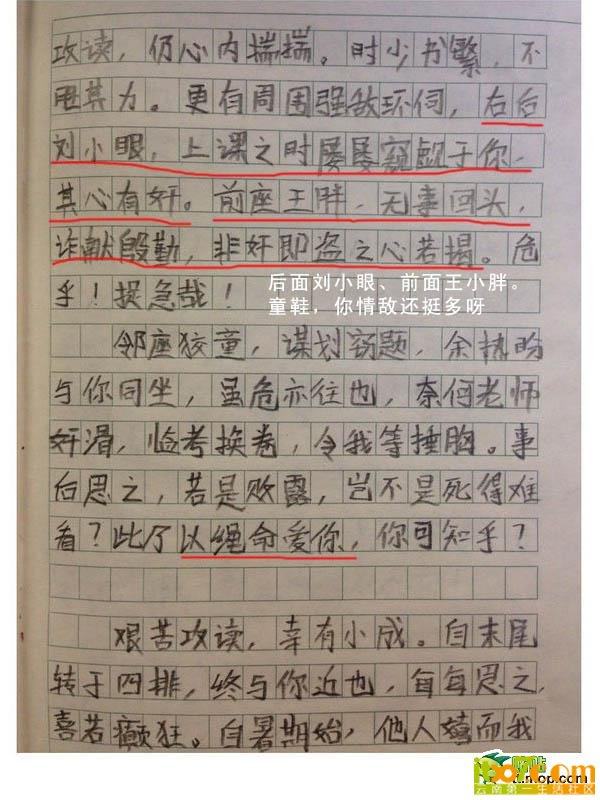 攻读，仍心内揣揣。时少书繁，不
胜其力。更有周围强敌环伺，右后
刘小眼，上课之时屡屡窥觑于你，
其心有奸。前座王胖，无事回头，
诈献殷勤，非奸即盗之心若揭。危
乎！捉急哉！
后面刘小眼、前面王小胖。
童鞋，你情敌还挺多呀
邻座狡童，谋划窃题，余热盼
与你同坐，虽危亦往也，奈何老师
奸滑，临考换卷，令我等捶胸。事
后思之，若是败露，岂不是死得难
看？此乃以绳命爱你，你可知乎？
艰苦攻读，幸有小成。自末尾
转于四排，终与你近也，每每思之，
喜若癫狂。自暑期始，他人嬉而我
云南第一生活社区